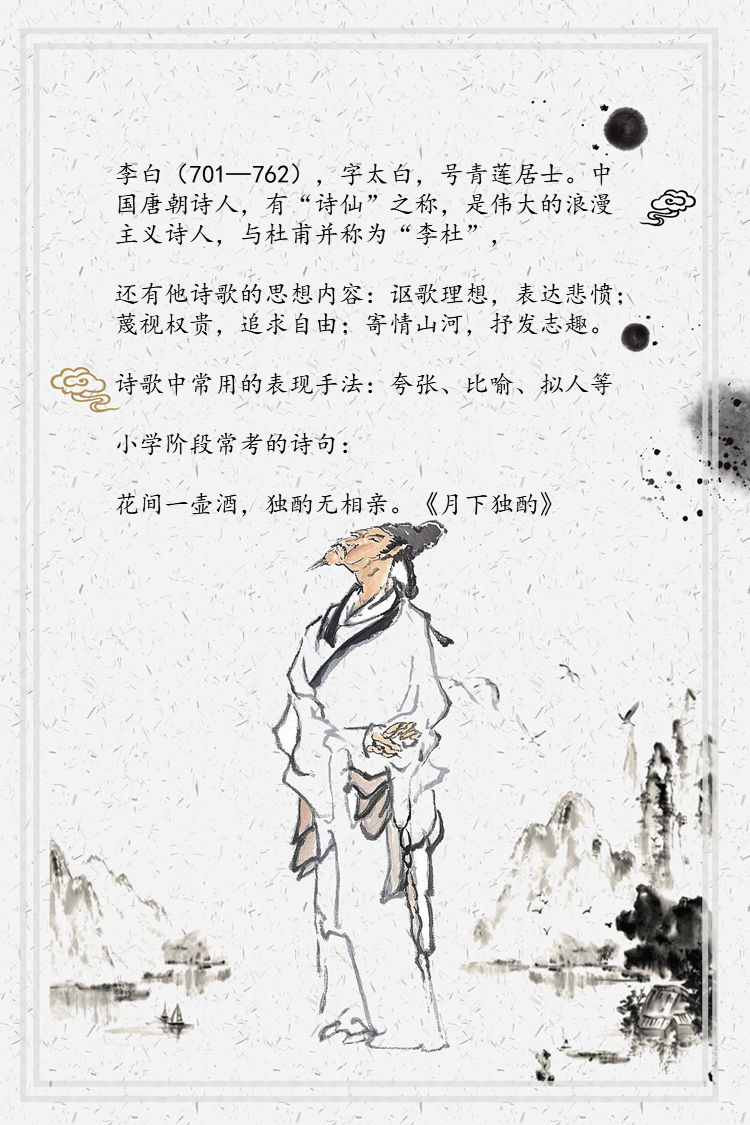 李白（701—762），字太白，号青莲居士。中
国唐朝诗人，有“诗仙”之称，是伟大的浪漫
主义诗人，与杜甫并称为“李杜”，
还有他诗歌的思想内容：讴歌理想，表达悲愤；
蔑视权贵，追求自由；寄情山河，抒发志趣。
诗歌中常用的表现手法：夸张、比喻、拟人等
小学阶段常考的诗句：
花间一壶酒，独酌无相亲。《月下独酌》